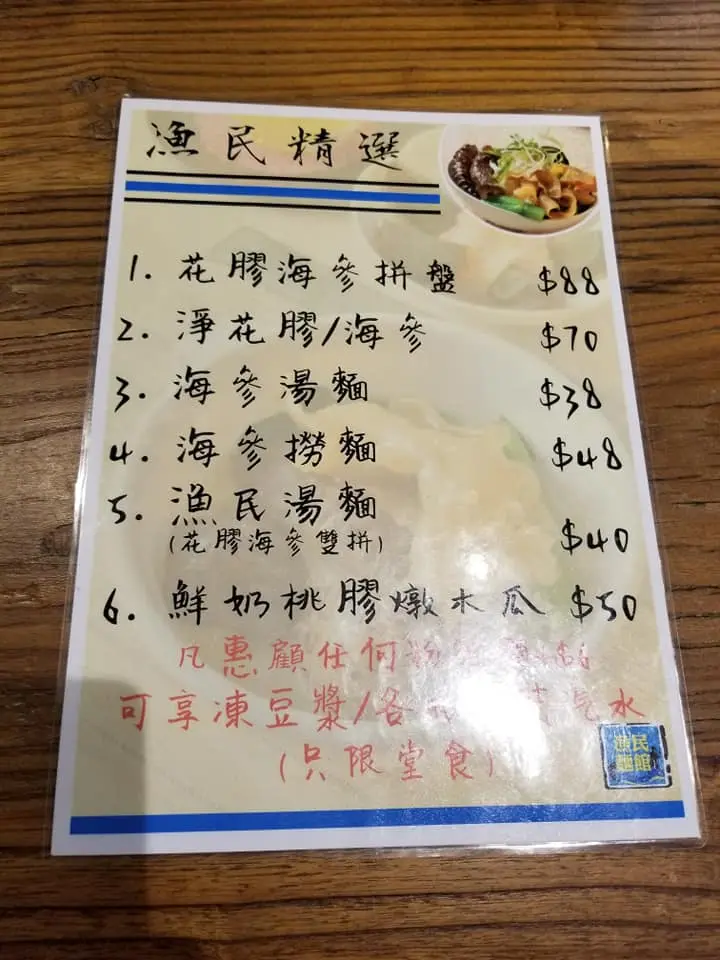 漁民精選
1. 花膠海參拼盤 $88
2. 淨花膠/海參 $70
3. 海參湯麵 $38
4. 海參撈麵 $48
5. 漁民湯麵
(花膠海參雙拼) $40
6. 鮮奶桃膠燉木瓜 $50
凡惠顧任何
可享凍豆漿/各 汽水
(只限堂食)
漁民
麵館